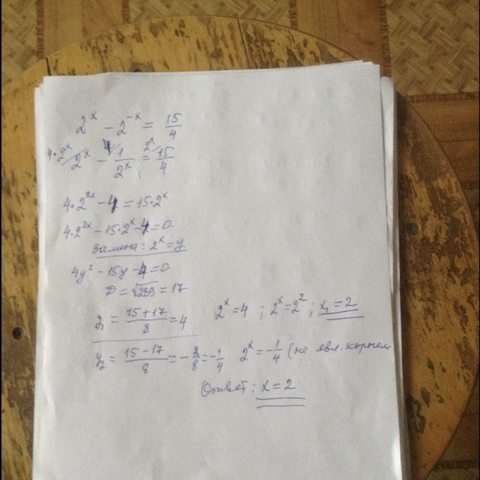 2^x - 2^{-x} = 15/4
4·2^x/ 2^x - 4/ 1/2^x = 2^x/ 15/4
4·2^{2x} - 4 = 15·2^x
4·2^{2x} - 15·2^x - 4 = 0
Замена: 2^x = y
4y² - 15y - 4 = 0
D = √289 = 17
y₁ = (15+17)/8 = 4   2^x = 4 ; 2^x = 2² ; x₁ = 2
y₂ = (15-17)/8 = -2/8 = -1/4   2^x = -1/4 (не явл. корнем
Ответ: x = 2